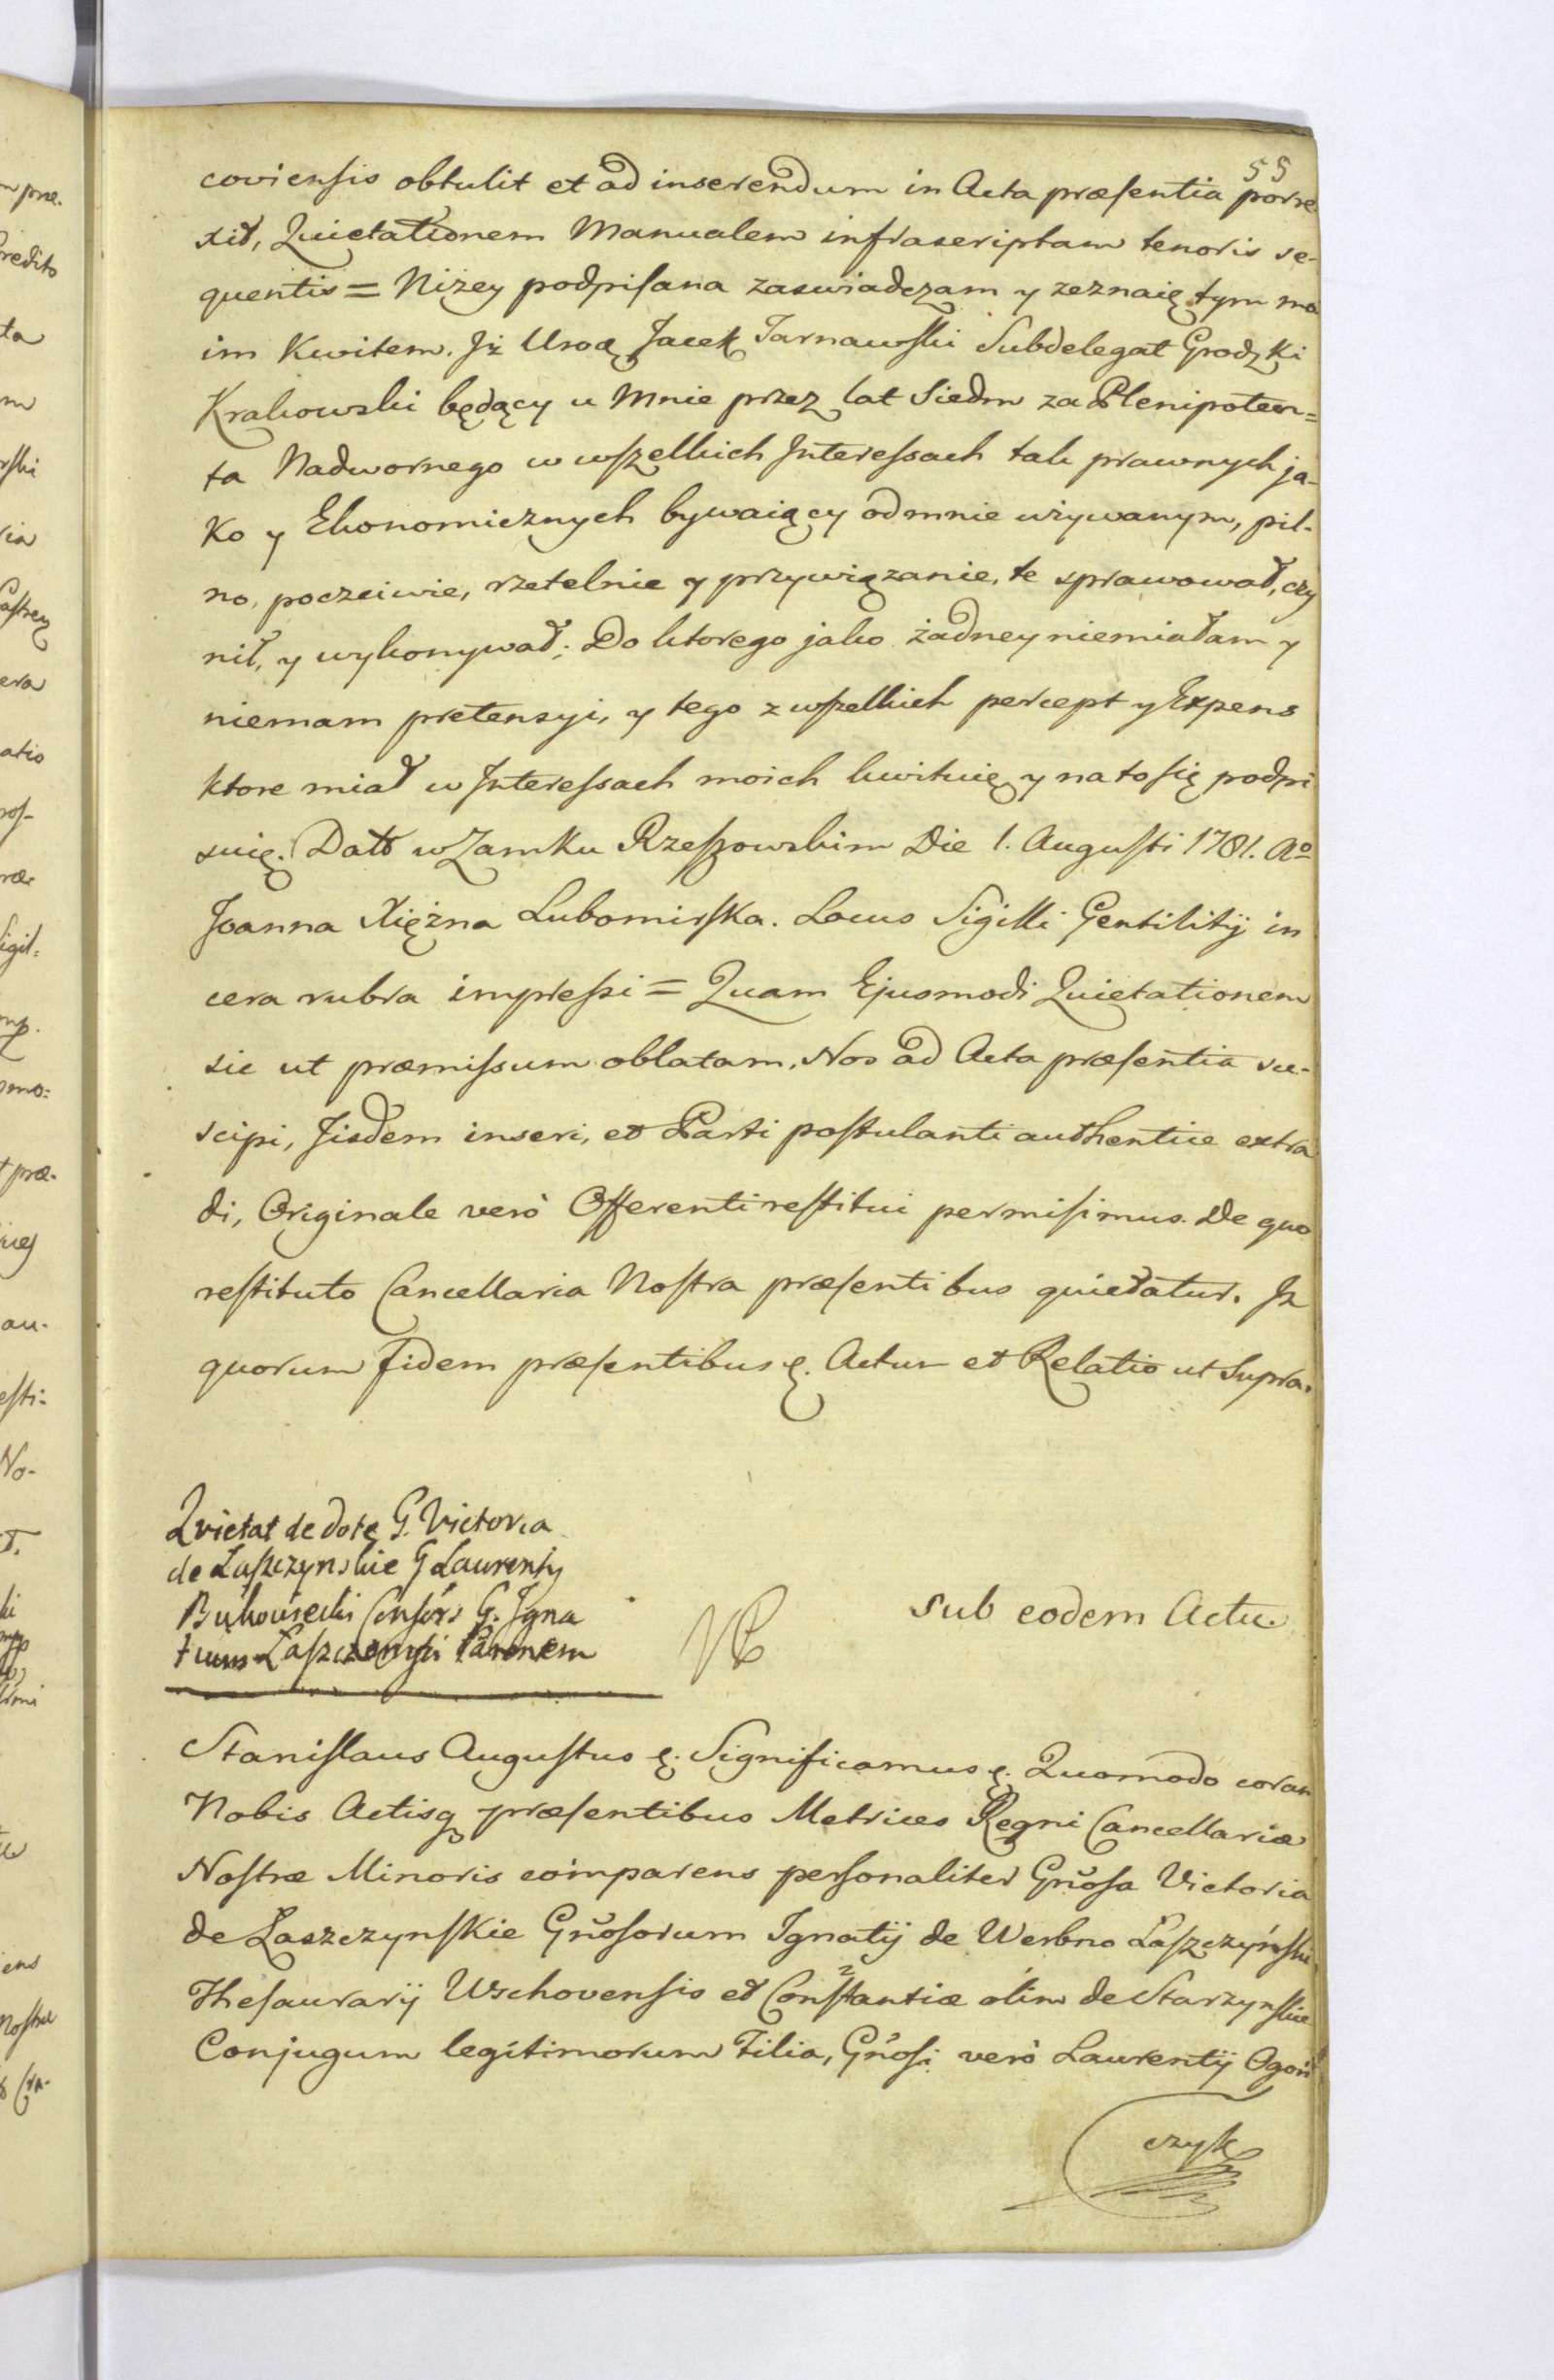 55
coviensis obtulit et ad inserendum in Acta præsentia porre
xit, Quietationem Manualem infrascriptam tenoris se-
quentis = Niżey podpisana zaswiadczam y zeznaię tym mo
im Kwitem. Jż Uroą Jacek Tarnawski Subdelegat Grodzki
Krakowski będący u Mnie przez lat Siedm za Plenipoten=
ta Nadwornego w wszelkich Interessach tak prawnych ja-
ko y Ekonomicznych bywaiący odmnie używanym, pil-
no, poczciwie, rzetelnie y przywiązanie, te sprawował, czy
nił, y wykonywał; Do ktorego jako żadney niemiałam y
niemam pretensyi, y tego z wszelkich percept y Expens
ktore miał w Interessach moich kwituię y na to się podpi
suię. Datt w Zamku Rzeszowskim Die 1. Augusti 1781. Ao
Joanna Xiężna Lubomirska. Locus Sigilli Gentilitij in
cera rubra impressi = Quam Ejusmodi Quietationem
sic ut præmissum oblatam, Nos ad Acta præsentia su-
scipi, Jisdem inseri, et Parti postulanti authentice extra
di, Originale verò Offerenti restitui permisimus. De quo
restituto Cancellaria Nostra præsentibus quietatur. In
quorum fidem præsentibus &. Actum et Relatio ut Supra.
Quietat de dote G. Victoria
de Łaszczynskie G Laurentij
Bukowiecki Consors G. Igna
tium Łaszczynski Parentem
Sub eodem Actu.
Stanislaus Augustus &. Significamus &. Quomodo coram
Nobis Actisq præsentibus Metrices Regni Cancellariæ
Nostræ Minoris comparens personaliter Gñosa Victoria
de Łaszczynskie Gñosorum Ignatij de Werbno Łaszczyński
Thesaurarij Wschovensis et Constantiæ olim de Starzynskie
Conjugum legitimorum Filia, Gñosi verò Laurentij Ogoń
czyk